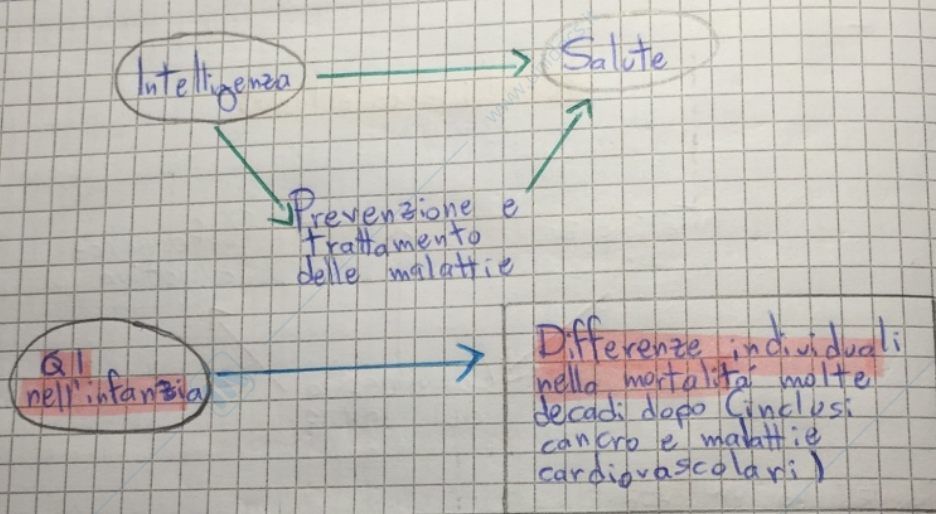 Intelligenza
Salute
Prevenzione e
trattamento
delle malattie
QI
nell'infanzia
Differenze individuali
nella mortalità molte
decadi dopo (inclusi
cancro e malattie
cardiovascolari)